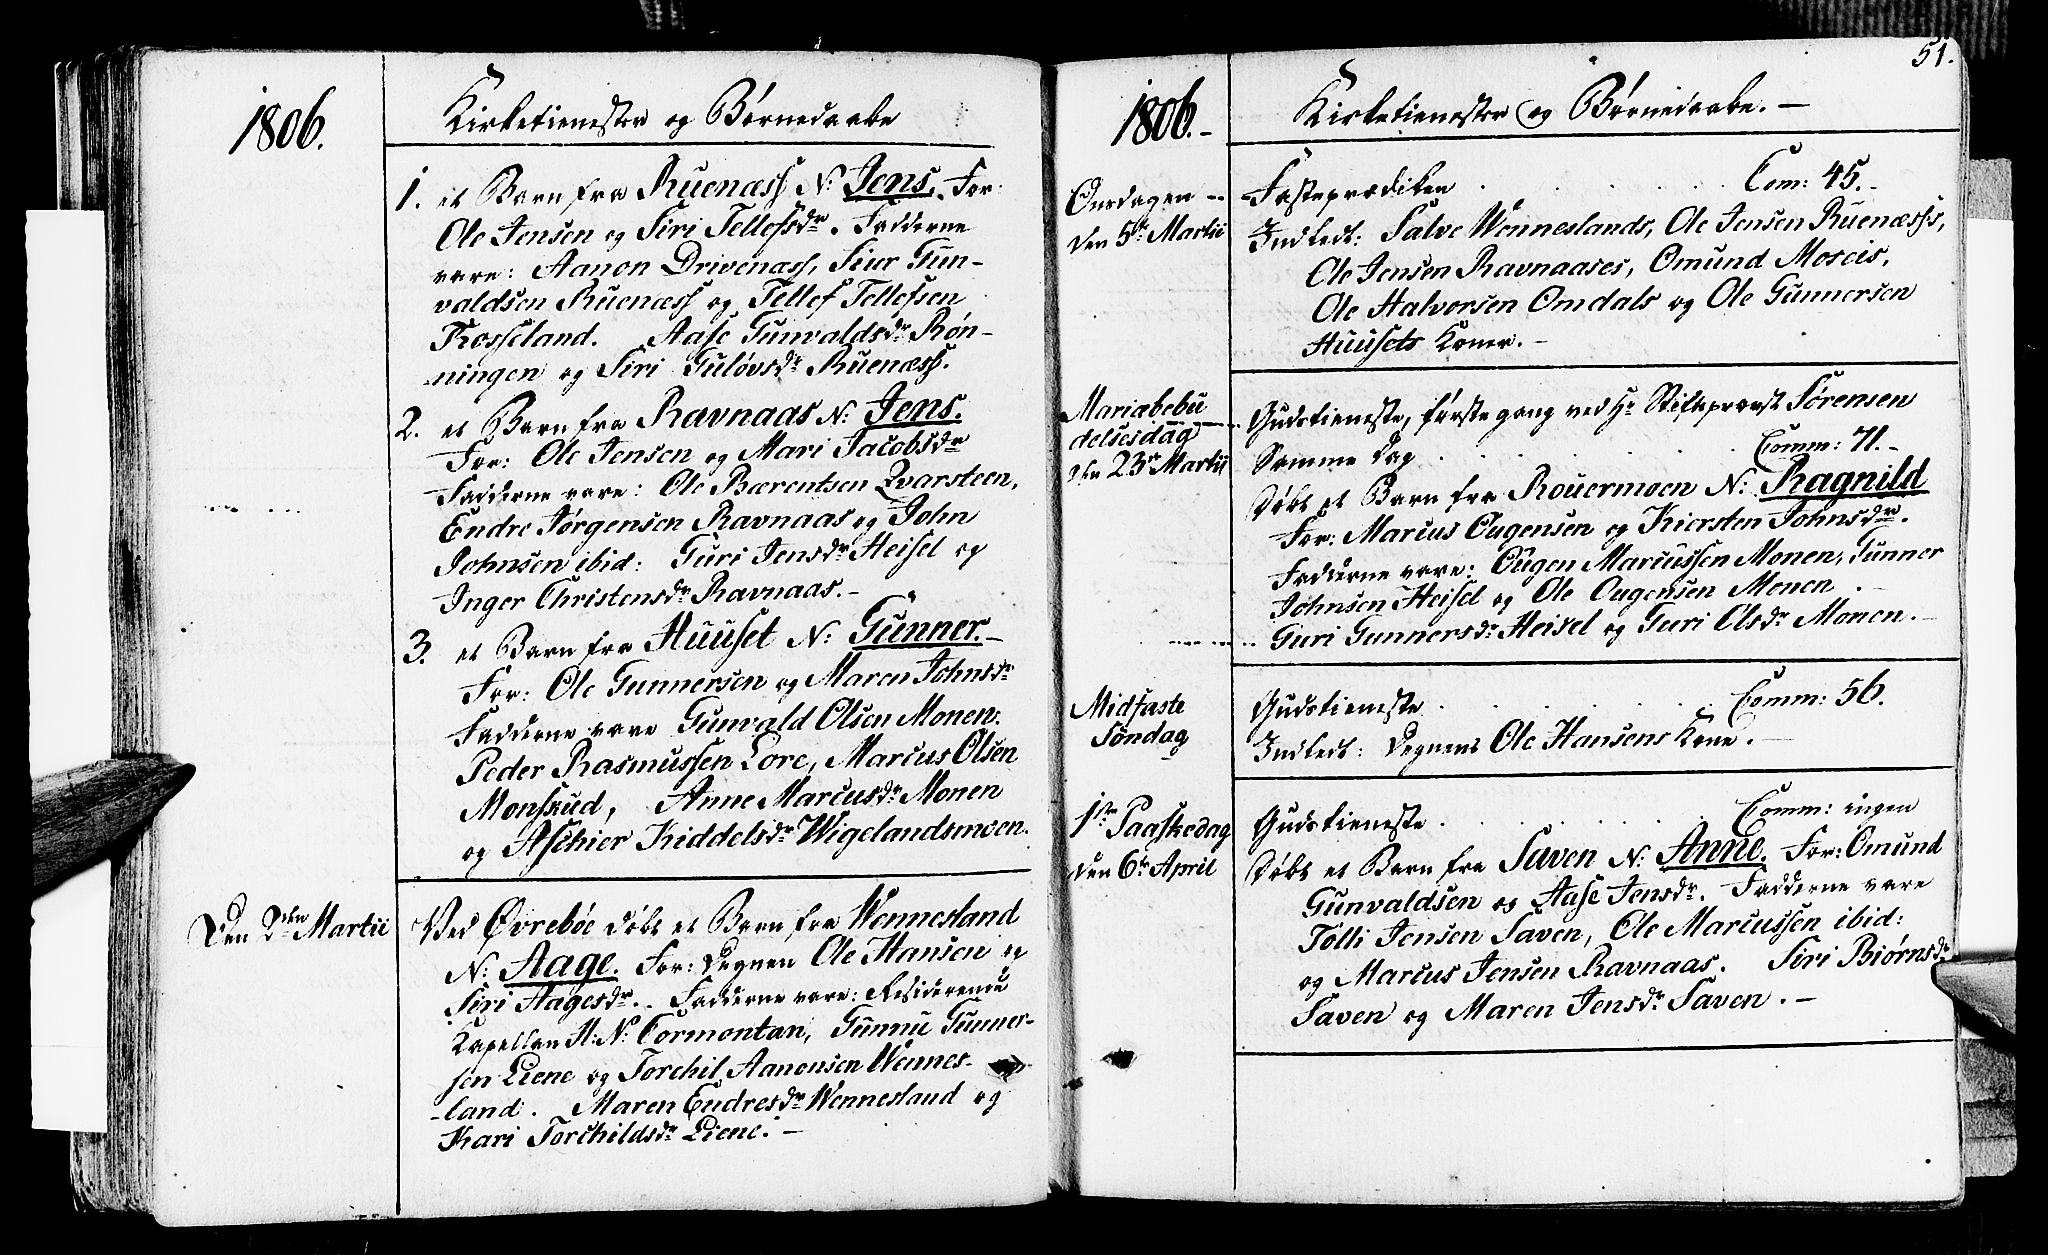 1806.
Kirketienester og Børnedaabe
1. et Barn fra Ruenæss N: Jens. For:
Ole Jensen og Siri Tellefsdr. Fadderne
vare: Aanon Drivenæss, Siur Gun-
valdsen Ruenæss og Tellef Tellefsen
Trosseland. Aase Gunvaldsdr Røn-
ningen og Siri Guløvsdr Ruenæss.
2. et Barn fra Ravnaas N: Jens.
For: Ole Jensen og Mari Jacobsdr
Fadderne vare: Ole Bærentsen Qvarsteen,
Endre Jørgensen Ravnaas og John
Johnsen ibid: Guri Jensdr Heisel og
Inger Christensdr Ravnaas. -
3. et Barn fra Huuset N: Gunner. -
For: Ole Gunnersen og Maren Johnsdr
Fadderne vare Gunvald Olsen Monen.
Peder Rasmussen Lore, Marcus Olsen
Monskud, Anne Marcusdr Monen
og Aschier Kiddelsdr Wigelandsmoen.
Den 2den Martii
Ved Øvrebøe døbt et Barn fra Wennesland
N: Aage. For: Degnen Ole Hansen og
Siri Aagesdr. Fadderne vare: Residerende
Kapellan H: N: Tormontan, Gunnu Gunner-
sen Liene og Torchil Aanonsen Wennes-
-land. Maren Endresdr Wennesland og
Kari Torchildsdr Liene. -
51.
1806. -
Kirketienester og Børnedaabe. -
Onsdagen -
den 5te Martii
Fasteprædiken . . . . . Com: 45. -
Indledt: Salve Wenneslands, Ole Jensen Ruenæss's,
Ole Jensen Ravnaases, Omund Moseis,
Ole Halvorsen Omdals og Ole Gunnersen
Huusets Koner. -
Mariæbebu
delsesdag
den 23de Martii
Gudstieneste, første gang ved Hr Stiftsprovst Sørensen
Samme dag . . . . . Comm: 71. -
Døbt et Barn fra Rouermoen N: Ragnild
For: Marcus Ougensen og Kiersten Johnsdr.
Fadderne vare: Ougen Marcussen Monen, Gunner
Johnsen Heisel og Ole Ougensen Monen .
Guri Gunnersdr Heisel og Guri Olsdr Monen. -
Midfaste
Søndag
Gudstieneste . . . . . Comm: 56.
Indledt: Degnens Ole Hansens Kone. -
1ste Paaskedag
den 6te April
Gudstieneste . . . . . Comm: ingen
Døbt et Barn fra Saven N: Anne. For: Omund
Gunvaldsen og Aase Jensdr. Fadderne vare
Tolli Jensen Saven, Ole Marcussen ibid:
og Marcus Jensen Ravnaas. Siri Biørnsdr
Saven og Maren Jensdr Saven. -